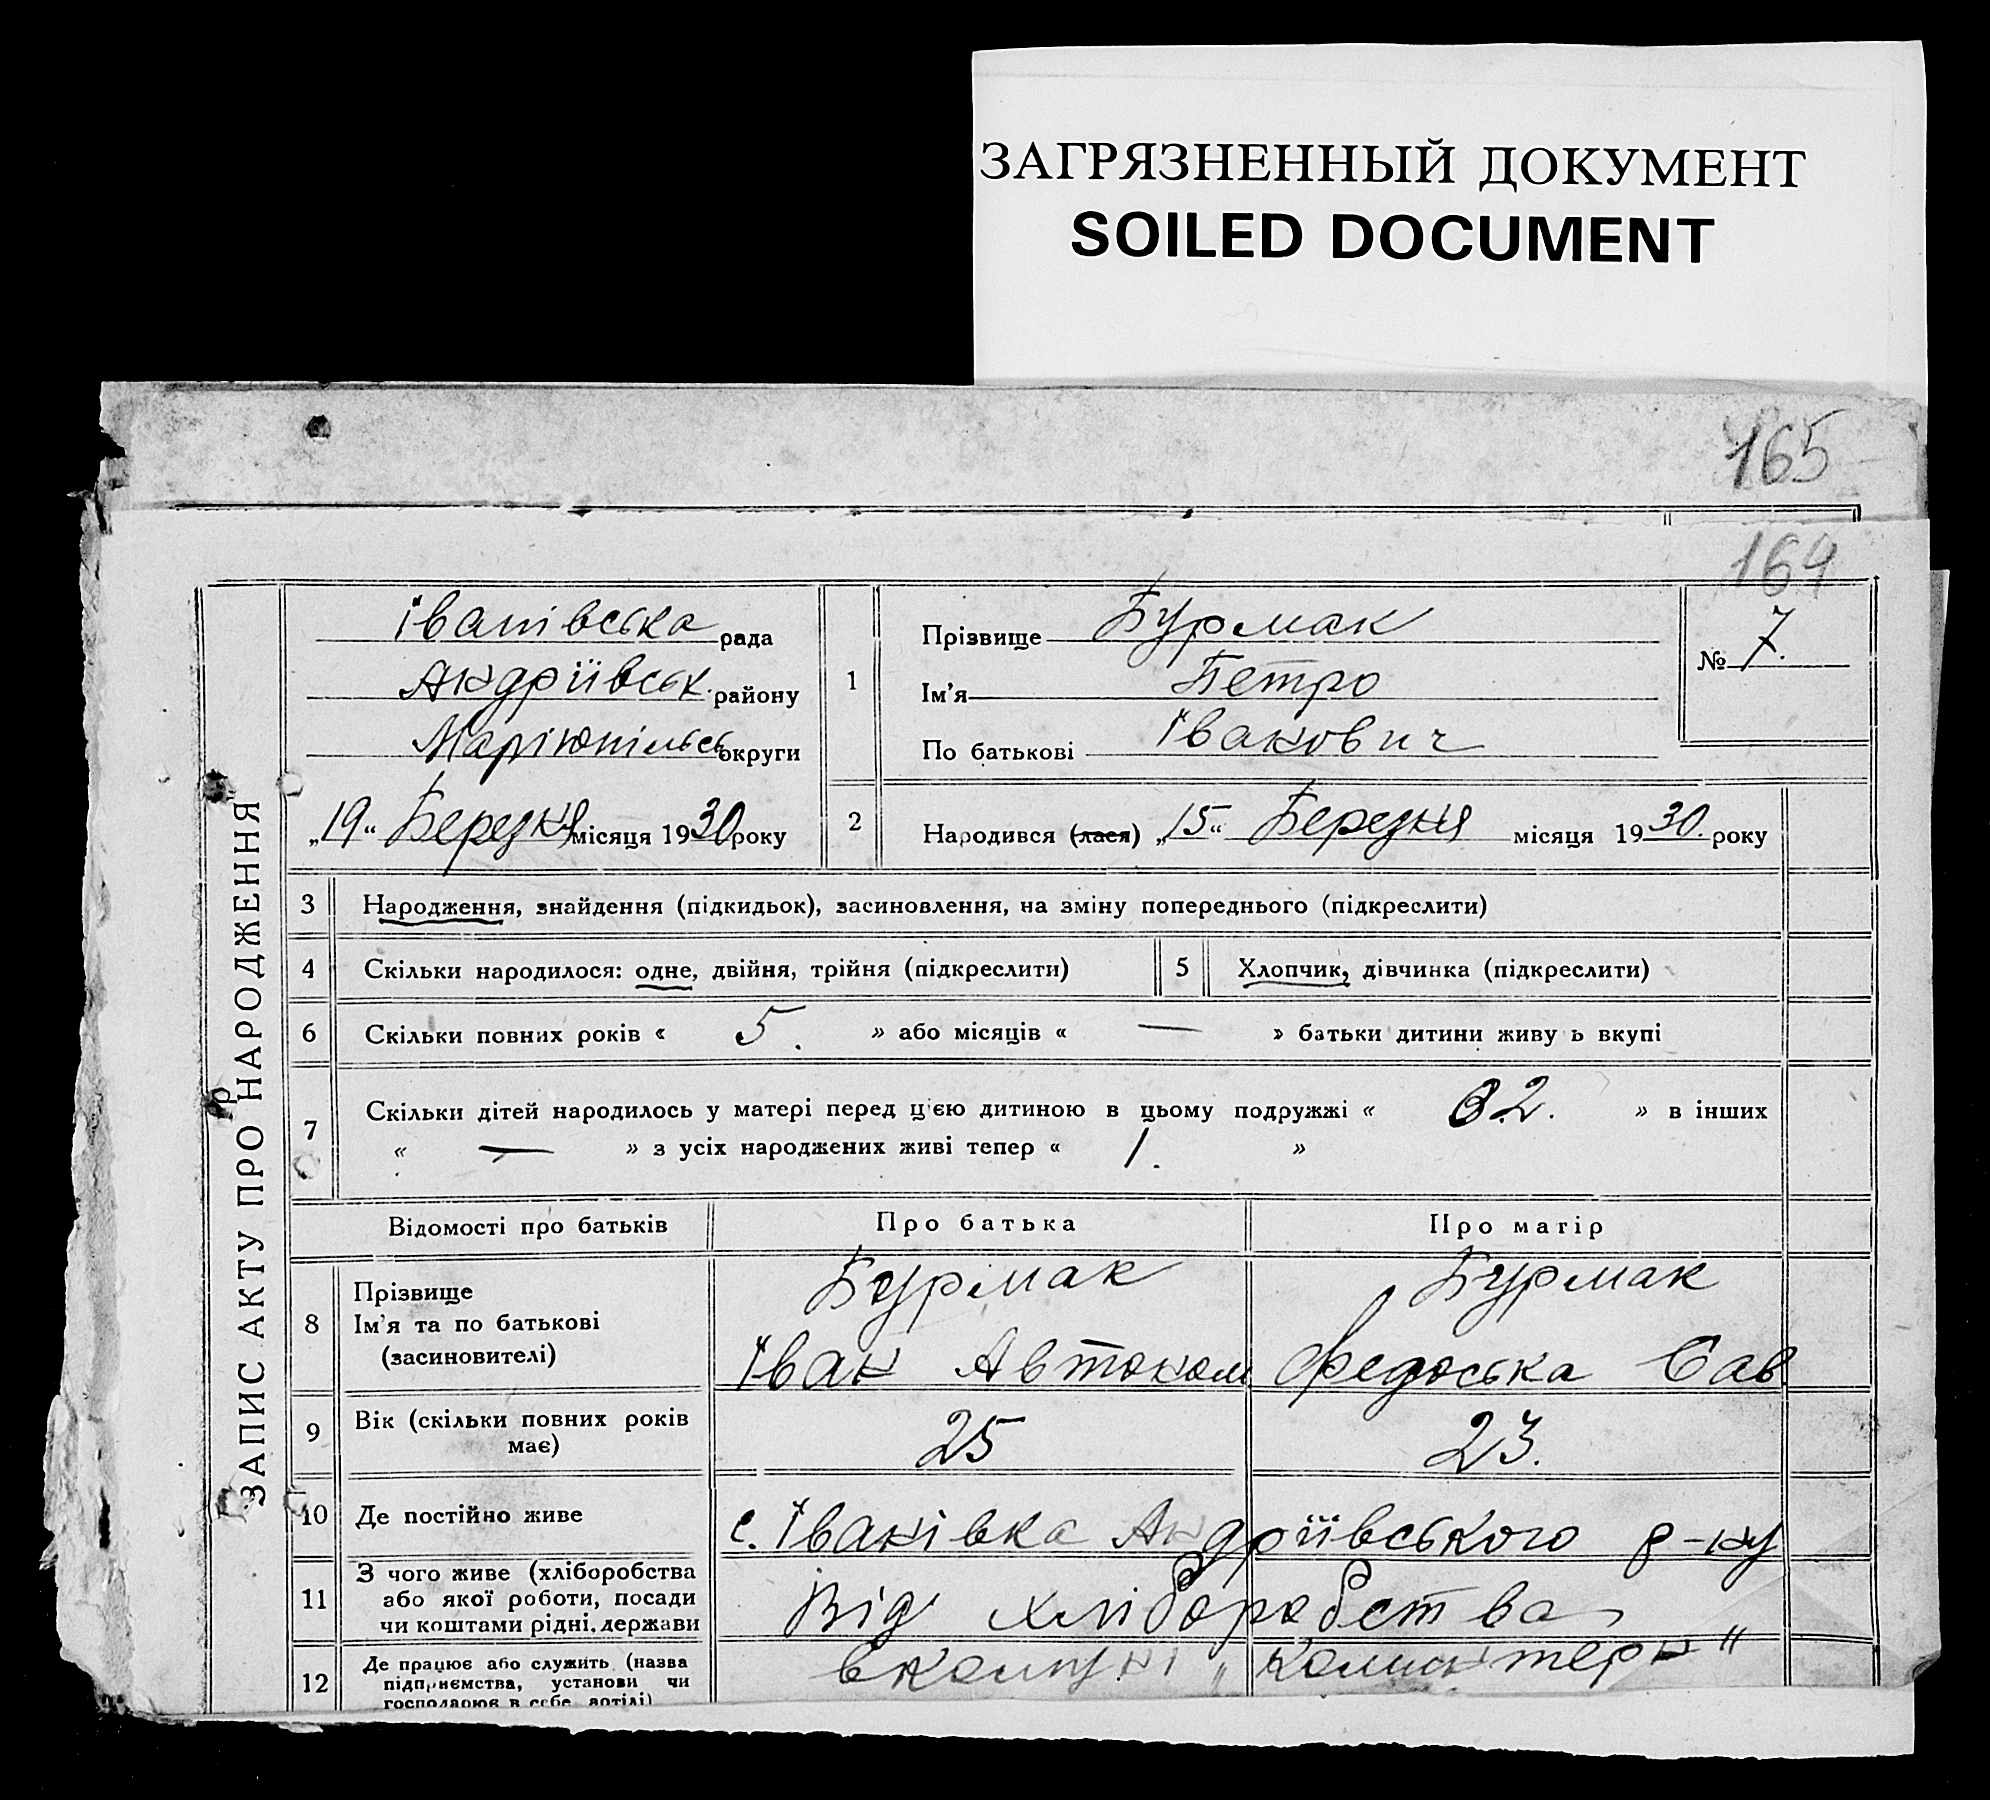 ЗАГРЯЗНЕННЫЙ ДОКУМЕНТ
SOILED DOCUMENT
165
164
ЗАПИС АКТУ ПРО НАРОДЖЕННЯ
Іванівська рада
Андріївськ. району
Маріюпільськ округи
„19“ Березня місяця 1930 року
1
Прізвище Бурмак
Ім'я Петро
По батькові Іванович
№ 7.
2
Народився (лася) „15“ Березня місяця 1930. року
3 Народження, знайдення (підкидьок), засиновлення, на зміну попереднього (підкреслити)
4 Скільки народилося: одне, двійня, трійня (підкреслити) 5 Хлопчик, дівчинка (підкреслити)
6 Скільки повних років « 5. » або місяців « — » батьки дитини живу ь вкупі
7 Скільки дітей народилось у матері перед ц'єю дитиною в цьому подружжі « 2. » в інших
« — » з усіх народжених живі тепер « 1. »
Відомості про батьків Про батька Про матір
8 Прізвище Бурмак Бурмак
Ім'я та по батькові
(засиновителі) Іван Автоном Федоська Сав
9 Вік (скільки повних років
має) 25 23.
10 Де постійно живе с. Іванівка Андріївського р-ну
11 З чого живе (хліборобства
або якої роботи, посади
чи коштами рідні, держави Від хліборобства
12 Де працює або служить (назва
підприємства, установи чи
господарює в себе, артілі) вкомуні „Комінтерн“